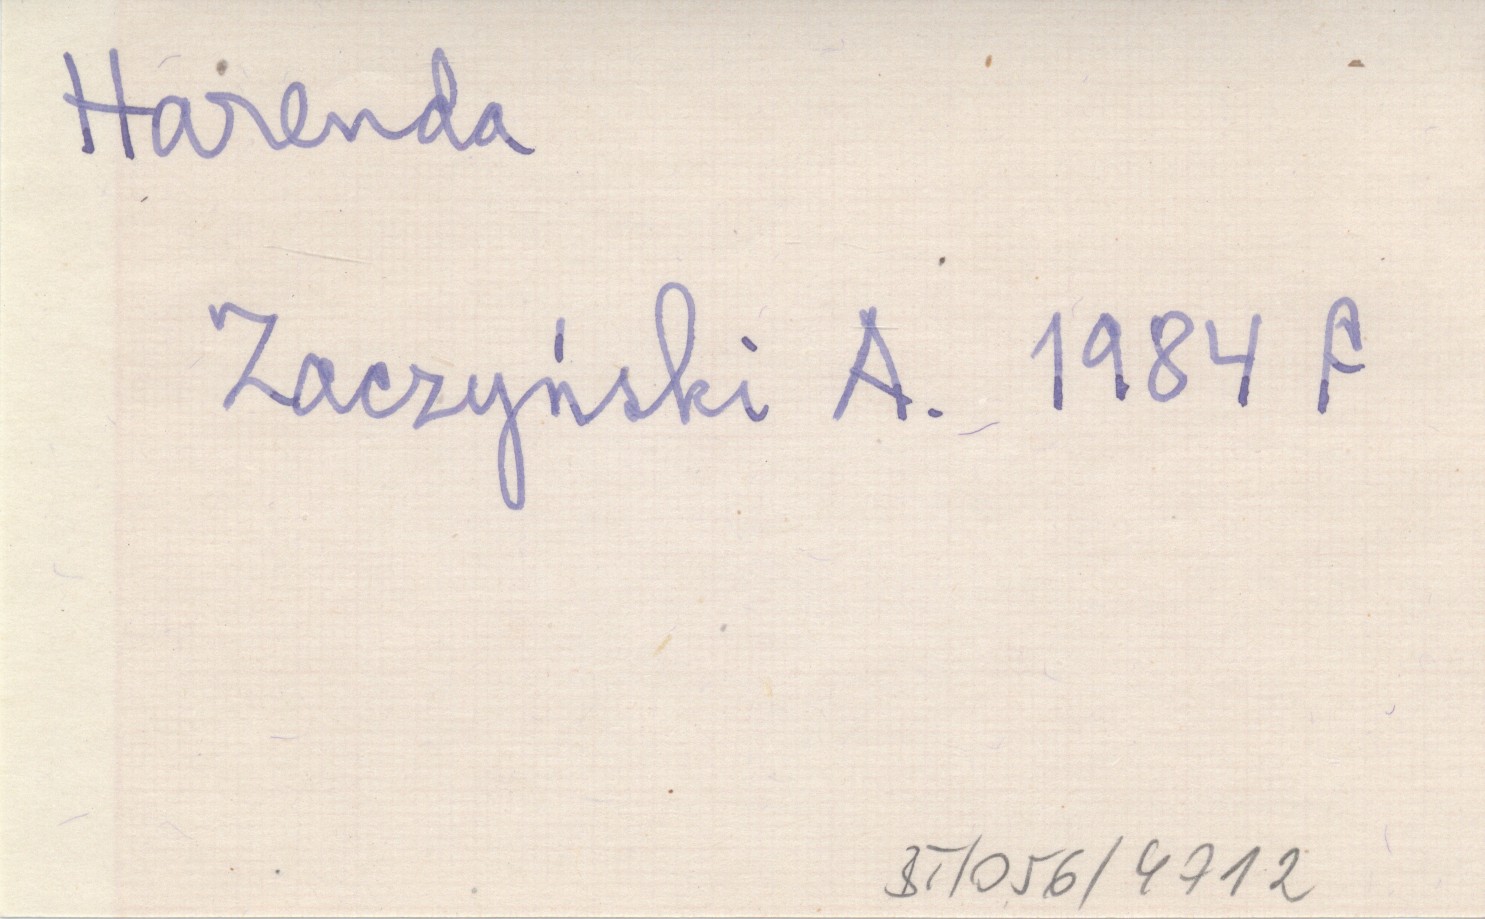 Harenda
Zaczyński A. 1984 F
BT/056/4712